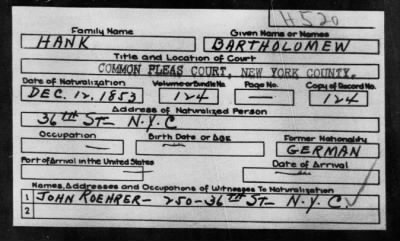 H520
Family Name Given Name or Names
HANK BARTHOLOMEW
Title and Location of Court
COMMON PLEAS COURT, NEW YORK COUNTY.
Date of Naturalization Volume or Bundle No. Page No. Copy of Record No.
DEC. 12. 1853 124 — 124
Address of Naturalized Person
36TH ST— N.Y.C
Occupation Birth Date or Age Former Nationality
— — GERMAN
Port of Arrival in the United States Date of Arrival
— —
Names, Addresses and Occupations of Witnesses To Naturalization
1 JOHN ROEHRER— 250—36TH ST— N.Y.C.
2